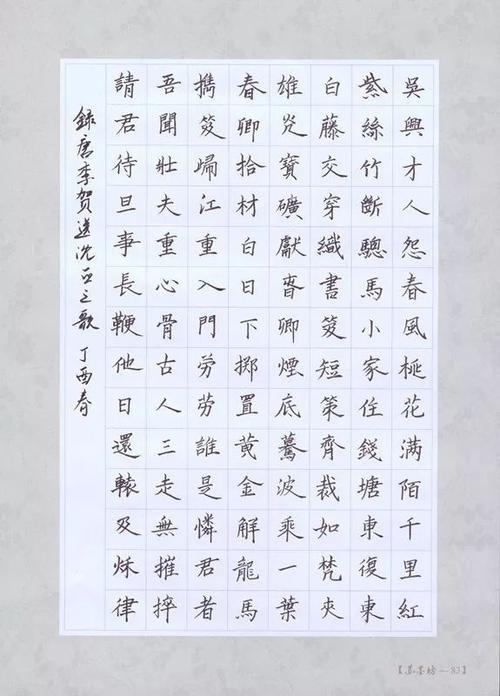 吳興才人怨春風桃花滿陌千里紅
紫絲竹斷驄馬小家住錢塘東復東
白藤交穿織書笈短策齊裁如梵夾
雄光寶礦獻春卿煙底驀波乘一葉
春卿拾材白日下擲置黃金解龍馬
攜笈歸江重入門勞勞誰是憐君者
吾聞壯夫重心骨古人三走無摧捽
請君待旦事長鞭他日還轅及秋律
錄唐李賀送沈亞之歌 丁酉春
83